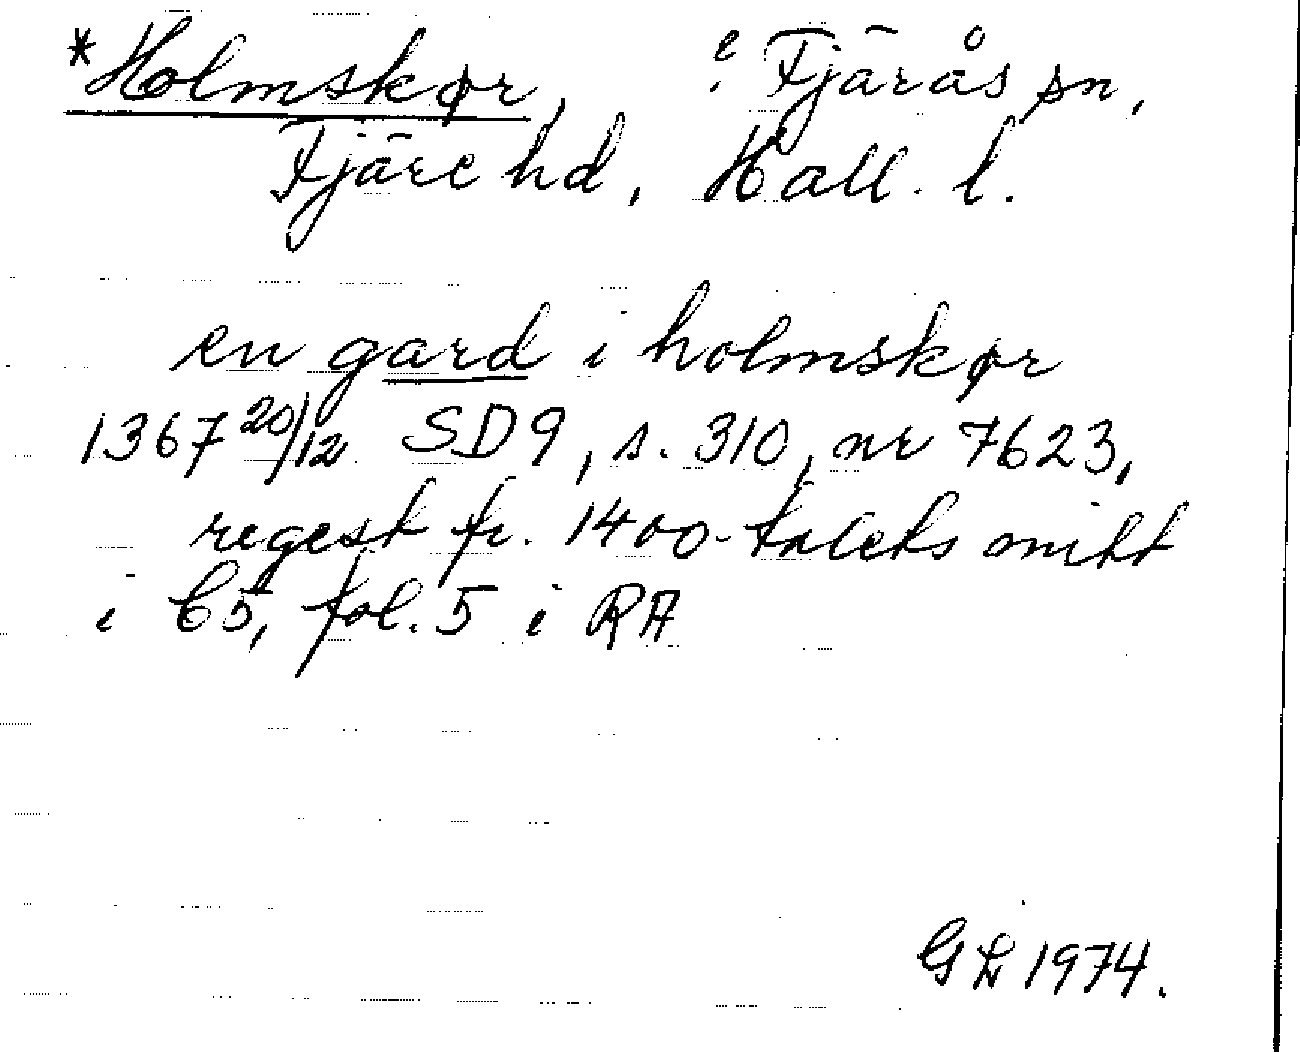 *Holmskør, ? Fjärås sn,
Fjäre hd, Hall. l.
en gard i holmskør
1367 20/12 SD 9, s. 310, nr 7623,
regest fr. 1400-talets mitt
i C5, fol. 5 i RA
GL 1974.